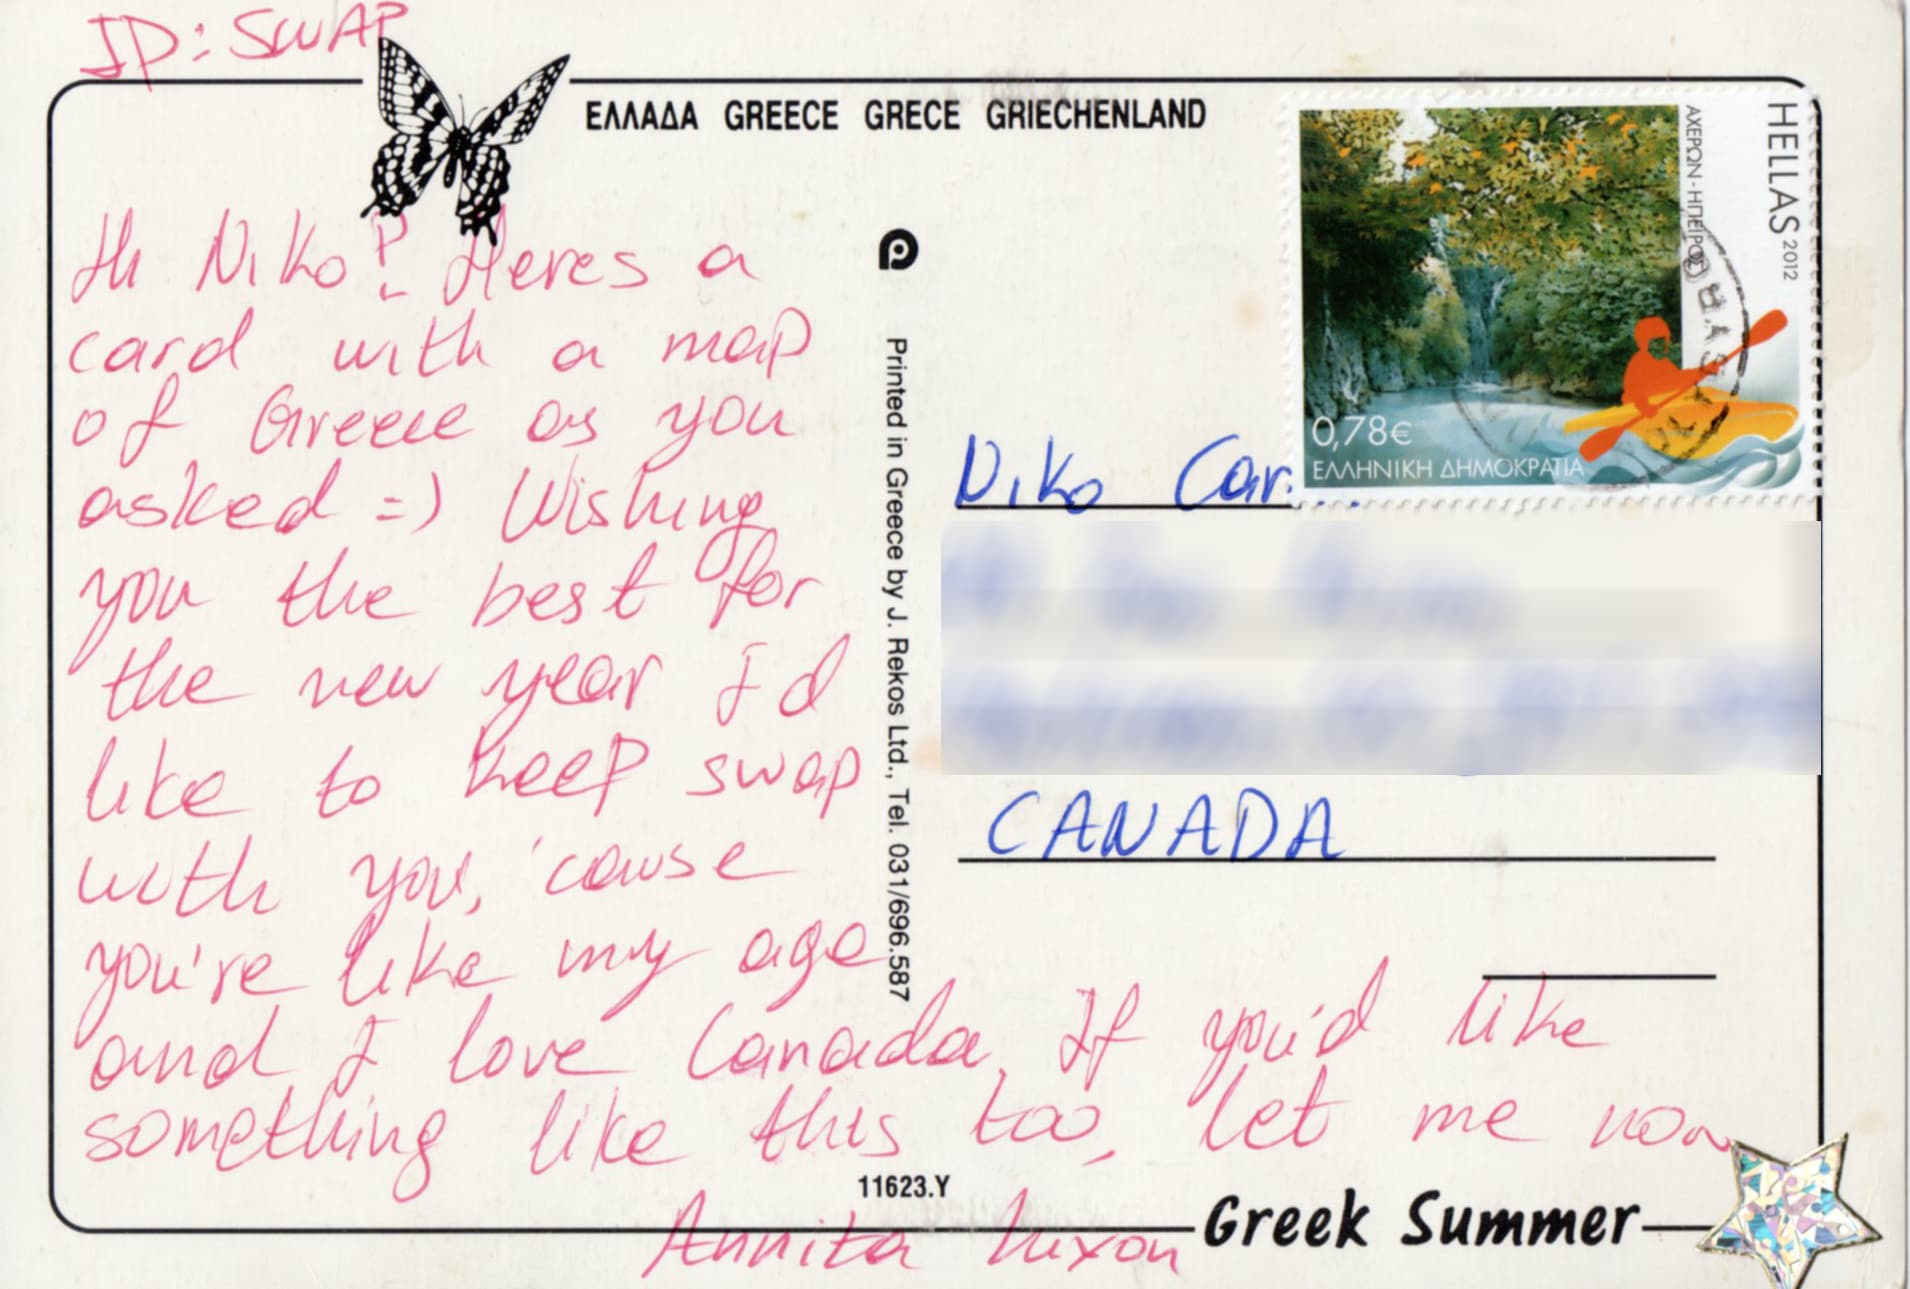 ID: SWAP
ΕΛΛΑΔΑ GREECE GRECE GRIECHENLAND
Hi Niko! Heres a
card with a map
of Greece as you
asked =) Wishing
you the best for
the new year I'd
like to keep swap
with you, 'cause
you're like my age
and I love Canada. If you'd like
something like this too, let me now
Annita Nixon
Printed in Greece by J. Rekos Ltd., Tel. 031/696.587
HELLAS 2012
ΑΧΕΡΩΝ - ΗΠΕΙΡΟΣ
0,78€
ΕΛΛΗΝΙΚΗ ΔΗΜΟΚΡΑΤΙΑ
Niko Car
CANADA
11623.Y
Greek Summer